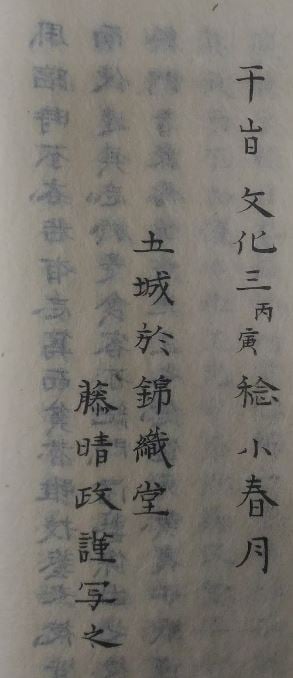 干旹文化三丙寅稔小春月
五城於錦織堂
藤晴政謹写之